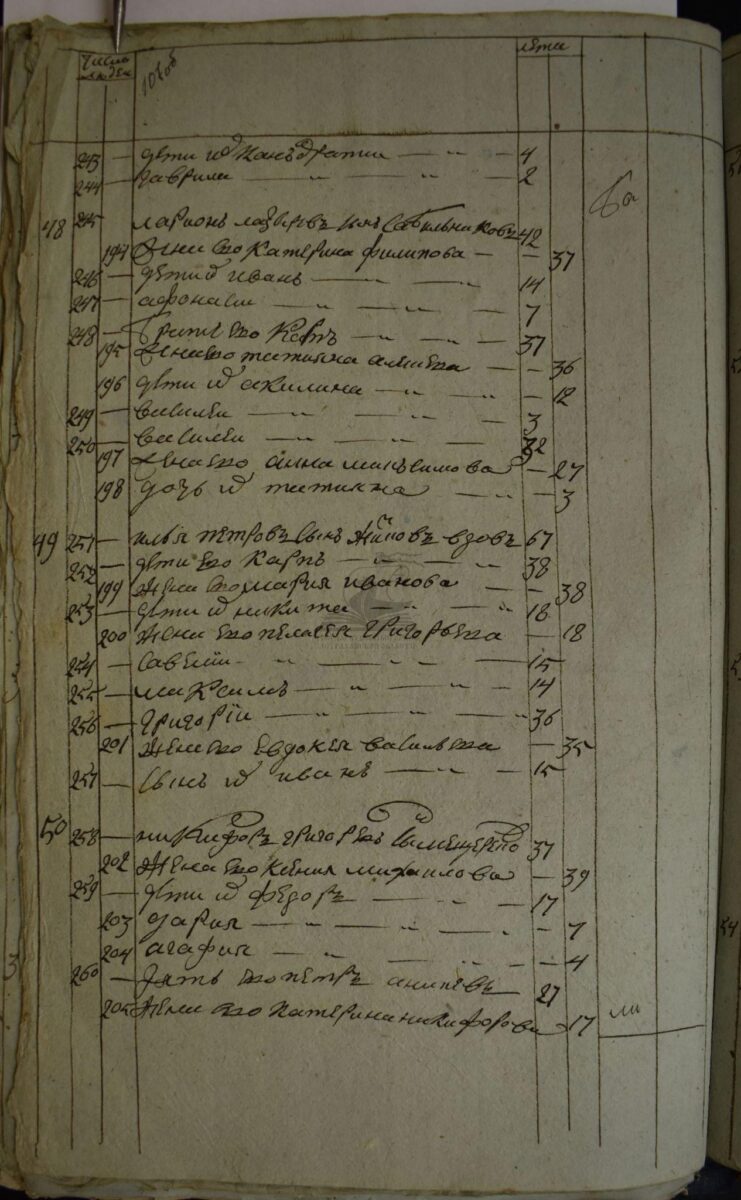 число людей лета
243 — дети их Канъдратии — „ — 4
244 — Гаврила — „ — „ — 2
48 245 Ларионъ Лазыревъ сынъ 42
194 Жена ево Катерина Филипова — — 37
246 — дети их Иванъ — „ — 14
247 — Афонасии — „ — „ — 7
248 — Братъ ево — „ — „ — 37
195 Жена ево Татияна — — 36
196 дети их Акилина — „ — „ — 12
249 — Василеи — „ — „ — 3
250 — Василеи — „ — „ — 32
197 Жена ево Анна Макъсимова — 27
198 дочь их Татияна — „ — 3
49 251 — Илья Петровъ сынъ вдовъ 67
252 — дети ево Карпъ — „ — „ 38
199 Жена ево Мария Иванова — — 38
253 — дети их Никита — „ — „ 18
200 Жена ево Пелагея Григорьева — 18
254 — Савелии — „ — „ — 15
255 — Максимъ — „ — „ — 14
256 — Григории — „ — „ — „ 36
201 Жена ево Евдокея Васильева — 35
257 — сынъ их Иванъ — „ — 15
50 258 — Никифоръ Григорьевъ сынъ 37
202 Жена ево Ксения Михаилова — 39
259 — дети их Федоръ — „ — 17
203 Дария — „ — „ — 7
204 Агафия — „ — „ — 4
260 — Зять ево Петръ — 27
205 Жена ево Катерина Никифорова — 17